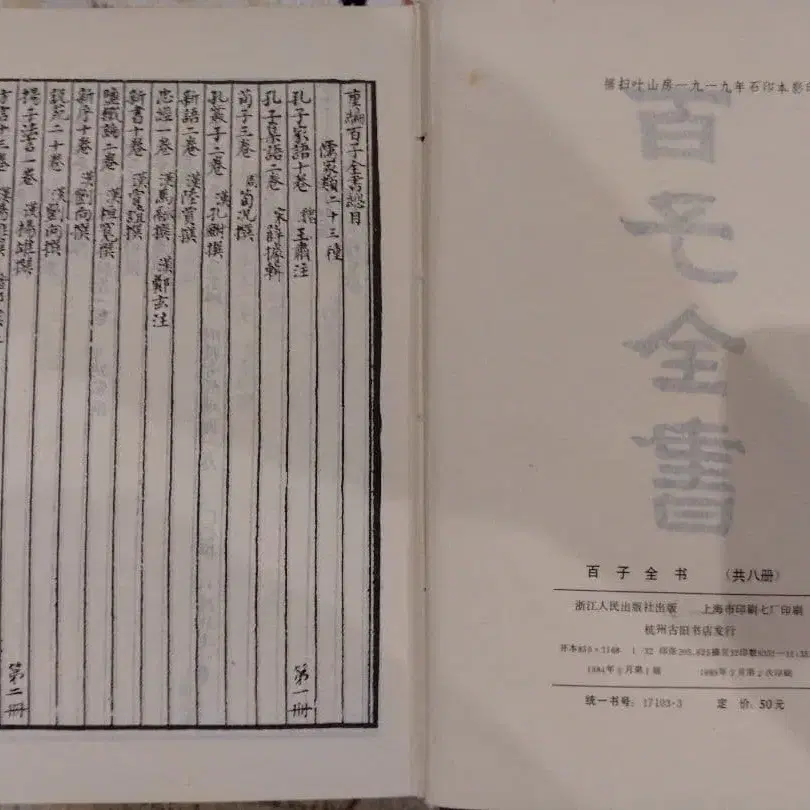 据扫叶山房一九一九年石印本影印
百子全書
百子全书 （共八册）
浙江人民出版社出版 上海市印刷七厂印刷
杭州古旧书店发行
开本850×1168 1/32 印张205.625 插页32印数
1984年 月第1版 月第2次印刷
统一书号：17103·3 定价：50元
重編百子全書總目
儒家類二十三種
孔子家語十卷 魏王肅注 第一冊
孔子集語二卷 宋薛據輯
荀子三卷 周荀况撰
孔叢子二卷 漢孔鮒撰
新語二卷 漢陸賈撰
忠經一卷 漢馬融撰 漢鄭玄注
新書十卷 漢賈誼撰
鹽鐵論二卷 漢桓寬撰
新序十卷 漢劉向撰
說苑二十卷 漢劉向撰
揚子法言一卷 漢揚雄撰 第二冊
方言十三卷 漢揚雄撰